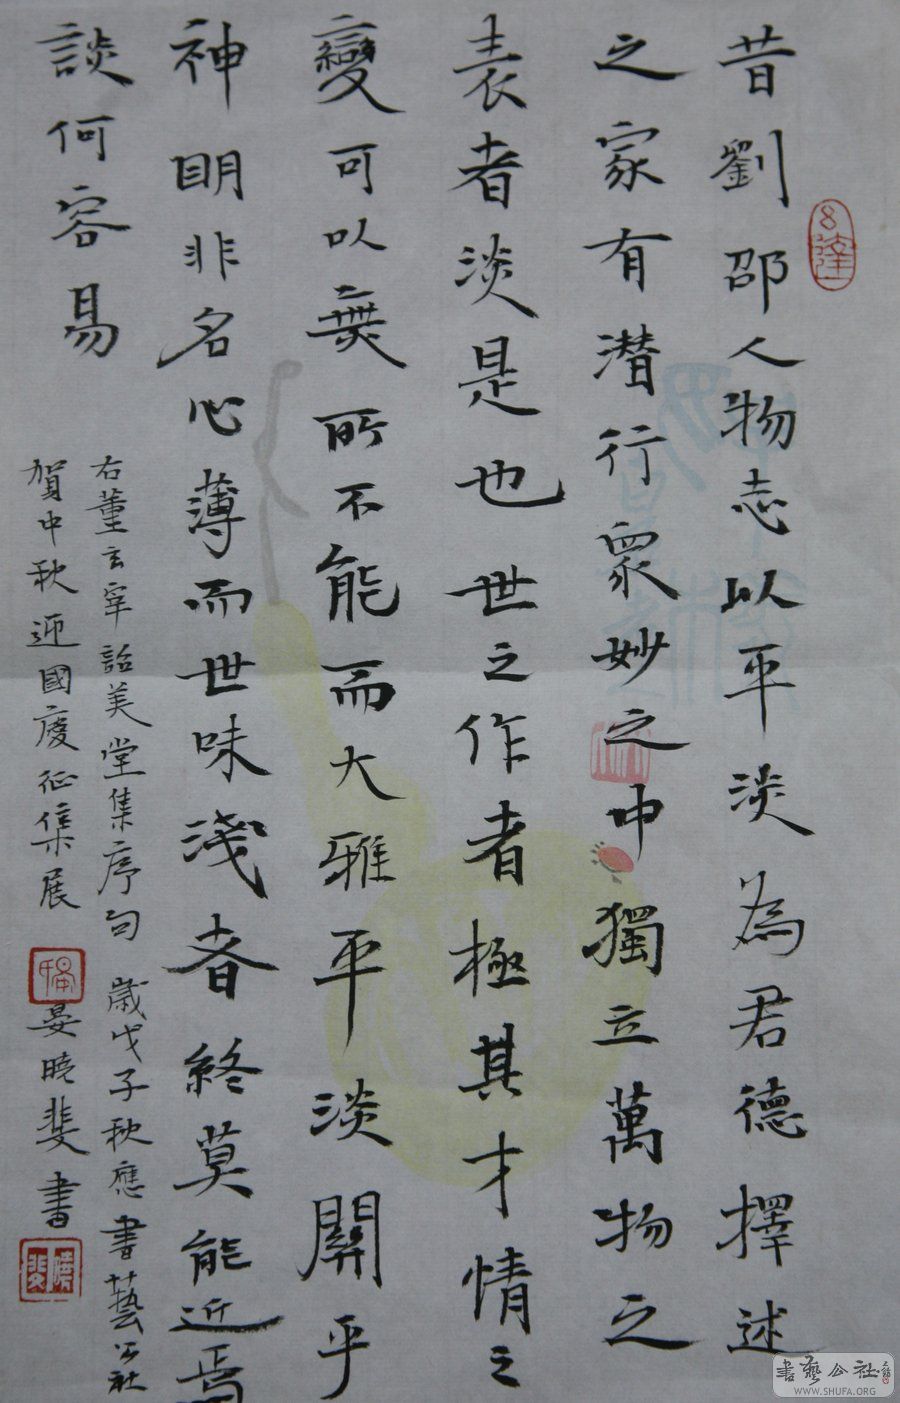 昔劉邵人物志以平淡為君德擇述
之家有潜行衆妙之中獨立萬物之
表者淡是也世之作者極其才情之
變可以無所不能而大雅平淡關乎
神明非名心薄而世味淺者終莫能近焉
談何容易
右董玄宰詒美堂集序句 歲戊子秋應書藝公社
賀中秋迎國慶征集展 晏曉斐書
書藝公社
WWW.SHUFA.ORG